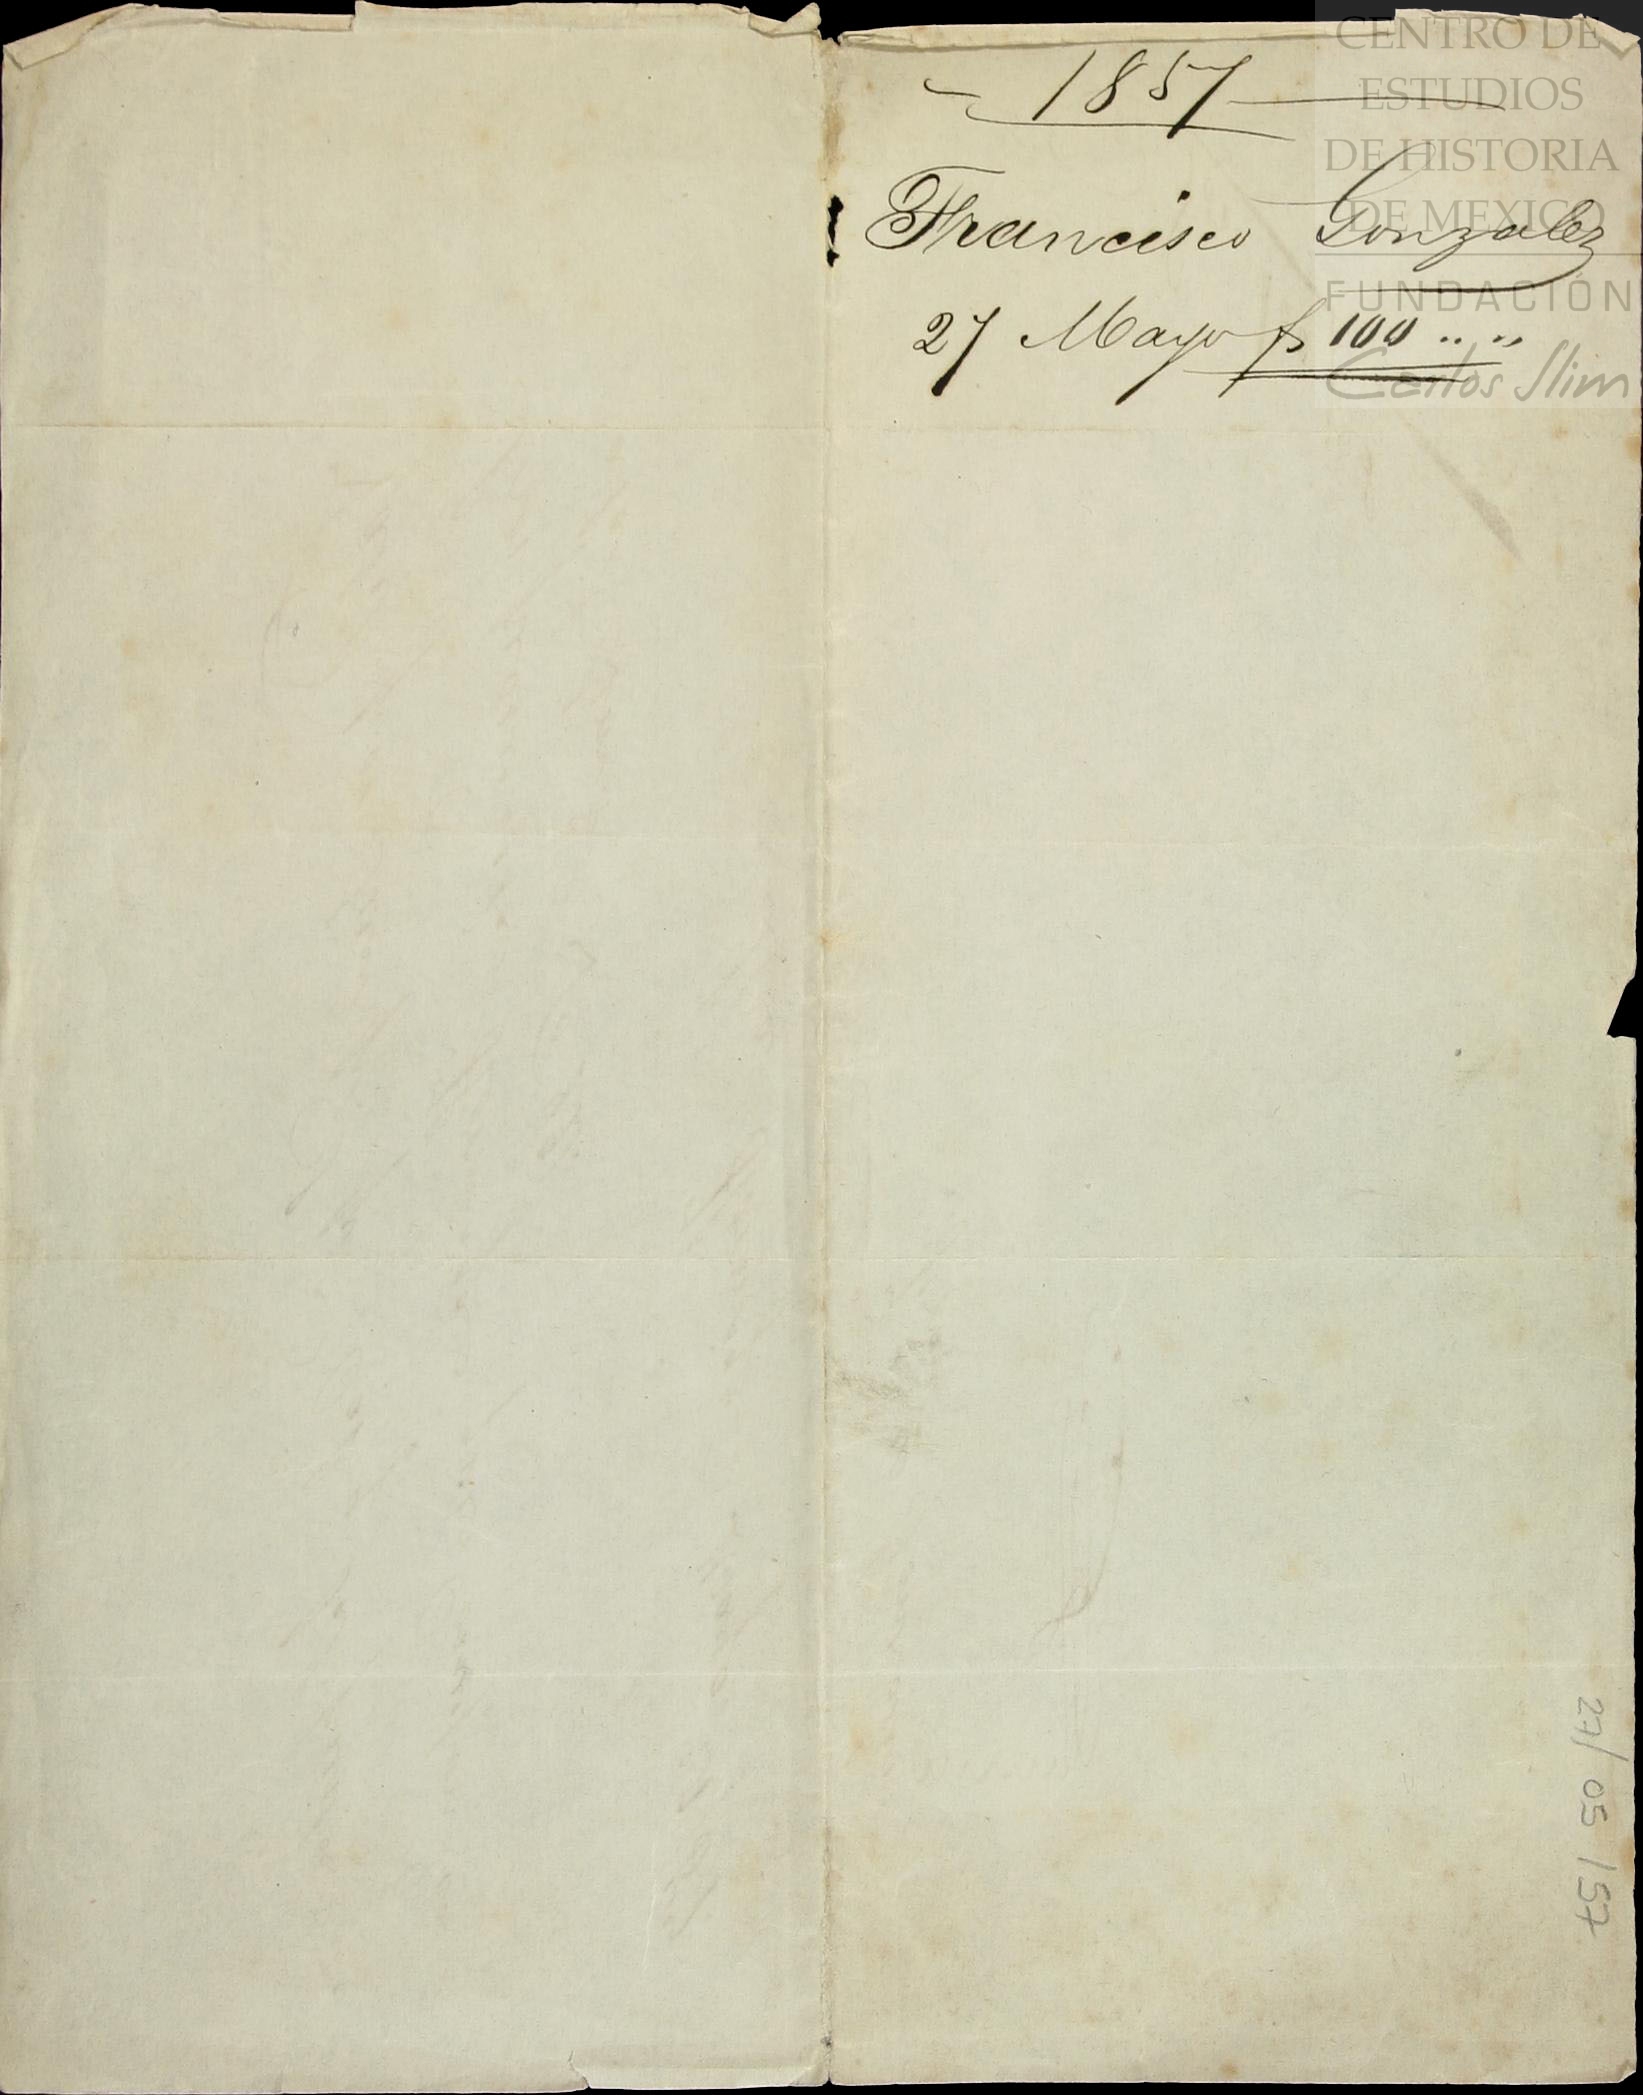 1857
Francisco Gonzalez
27 Mayo $ 100 " "
CENTRO DE
ESTUDIOS
DE HISTORIA
DE MEXICO
FUNDACIÓN
Carlos Slim
27/05/57